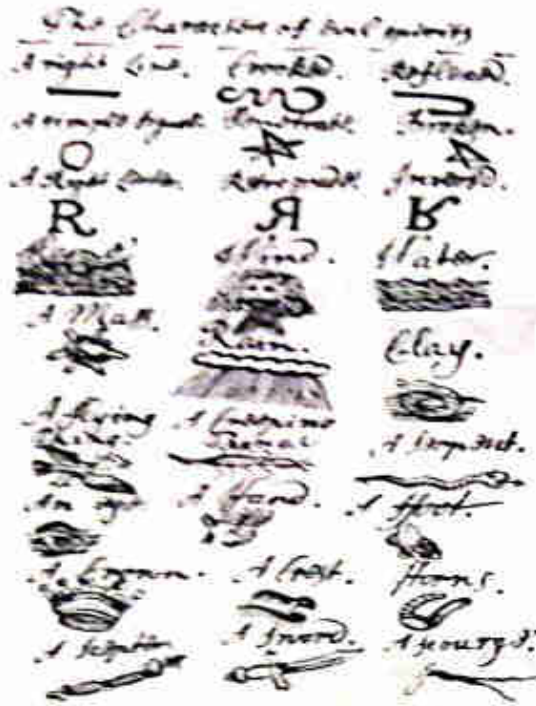 The Characters of Evil spirits
A right line. Crooked. Reflexed.
A simple figure. Penetrate. Broken.
A Right Letter. Retrograde. Inversed.
R R R
Wind. Water.
A Mass. Rain. Clay.
A flying thing. A creeping thing. A serpent.
An eye. A Hand. A foot.
A Crown. A Crest. Horns.
A scepter. A sword. A scourge.